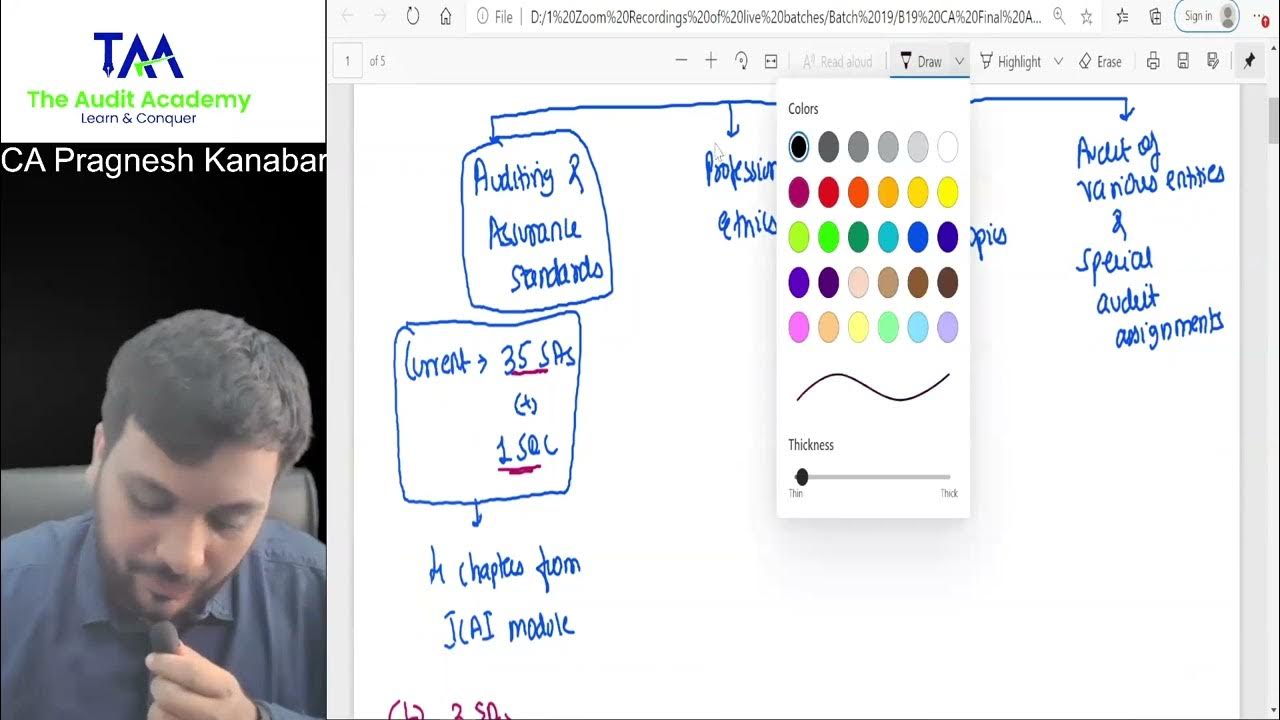 TAA
The Audit Academy
Learn & Conquer
CA Pragnesh Kanabar
File
D:/1%20Zoom%20Recordings%20of%20live%20batches/Batch%2019/B19%20CA%20Final%20A...
Sign in
1 of 5
Read aloud
Draw
Highlight
Erase
Auditing &
Assurance
Standards
Profession
Ethics
opics
Audit of
various entities
&
special
audit
assignments
Current > 35 SAs
(+)
1 SQC
chapters from
ICAI module
(-) 3 SAs
Colors
Thickness
Thin
Thick